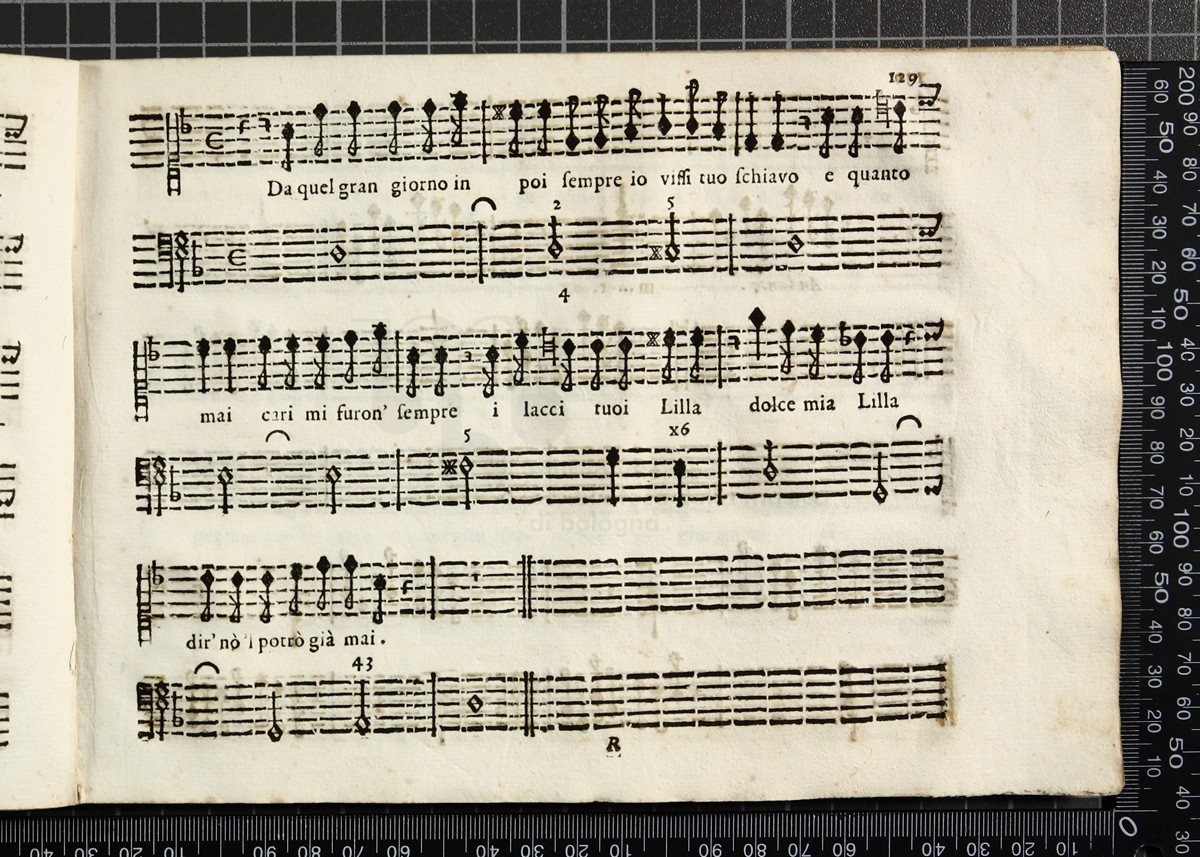 129
Da quel gran giorno in poi ſempre io viſſi tuo ſchiavo e quanto
2 5
4
mai cari mi furon' ſempre i lacci tuoi Lilla dolce mia Lilla
5 x6
di bologna
dir' nò 'l potrò già mai.
43
R